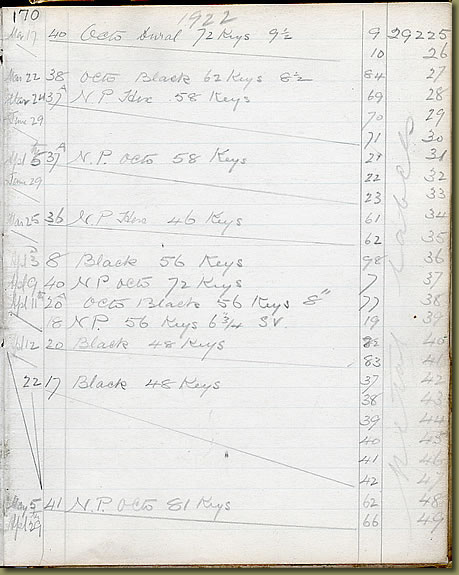 170 1922
Mar 17 40 Octo Dural 72 Keys 9½ 9 29225
10 26
Mar 22 38 Octo Black 62 Keys 8½ 84 27
Mar 24 37A N.P. Hex 58 Keys 69 28
June 29 70 29
71 30
Apl 5 37A N.P. Octo 58 Keys 21 31
June 29 22 32
23 33
Mar 25 36 N.P. Hex 46 Keys 61 34
62 35
Apl 3 8 Black 56 Keys 98 36
Apl 9 40 NP Octo 72 Keys 7 37
Apl 11th 20A Octo Black 56 Keys 8" 77 38
18 N.P. 56 Keys 6¾ S.V. 19 39
Apl 12 20 Black 48 Keys 82 40
83 41
22 17 Black 48 Keys 37 42
38 43
39 44
40 45
41 46
42 47
May 5 41 N.P. Octo 81 Keys 62 48
Apl 29 66 49
Metal Labels